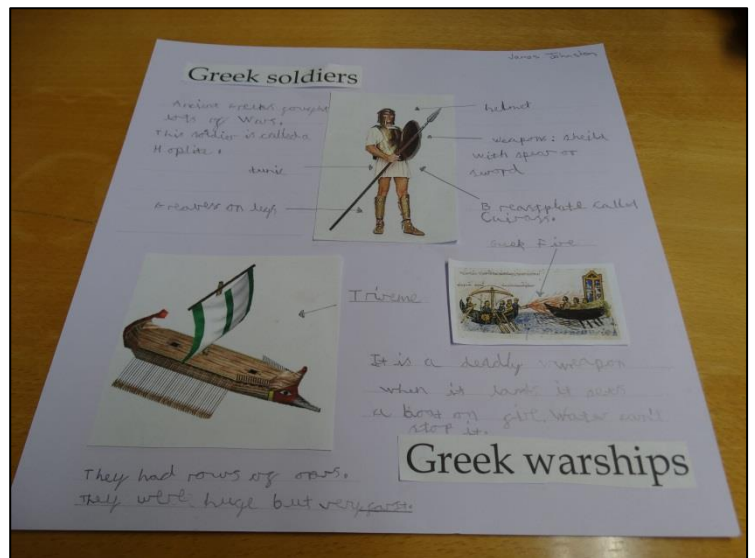 James Johnston
Greek soldiers
Ancient Greeks fought
lots of Wars.
This soldier is called a
Hoplite.
helmet
weapons: sheild
with spear or
sword
tunic
Breastplate called
Cuirass.
Greaves on legs
Greek Fire
Trireme
It is a deadly weapon
when it lands it sets
a boat on fire. Water can't
stop it.
Greek warships
They had rows of oars.
They were huge but very fast.